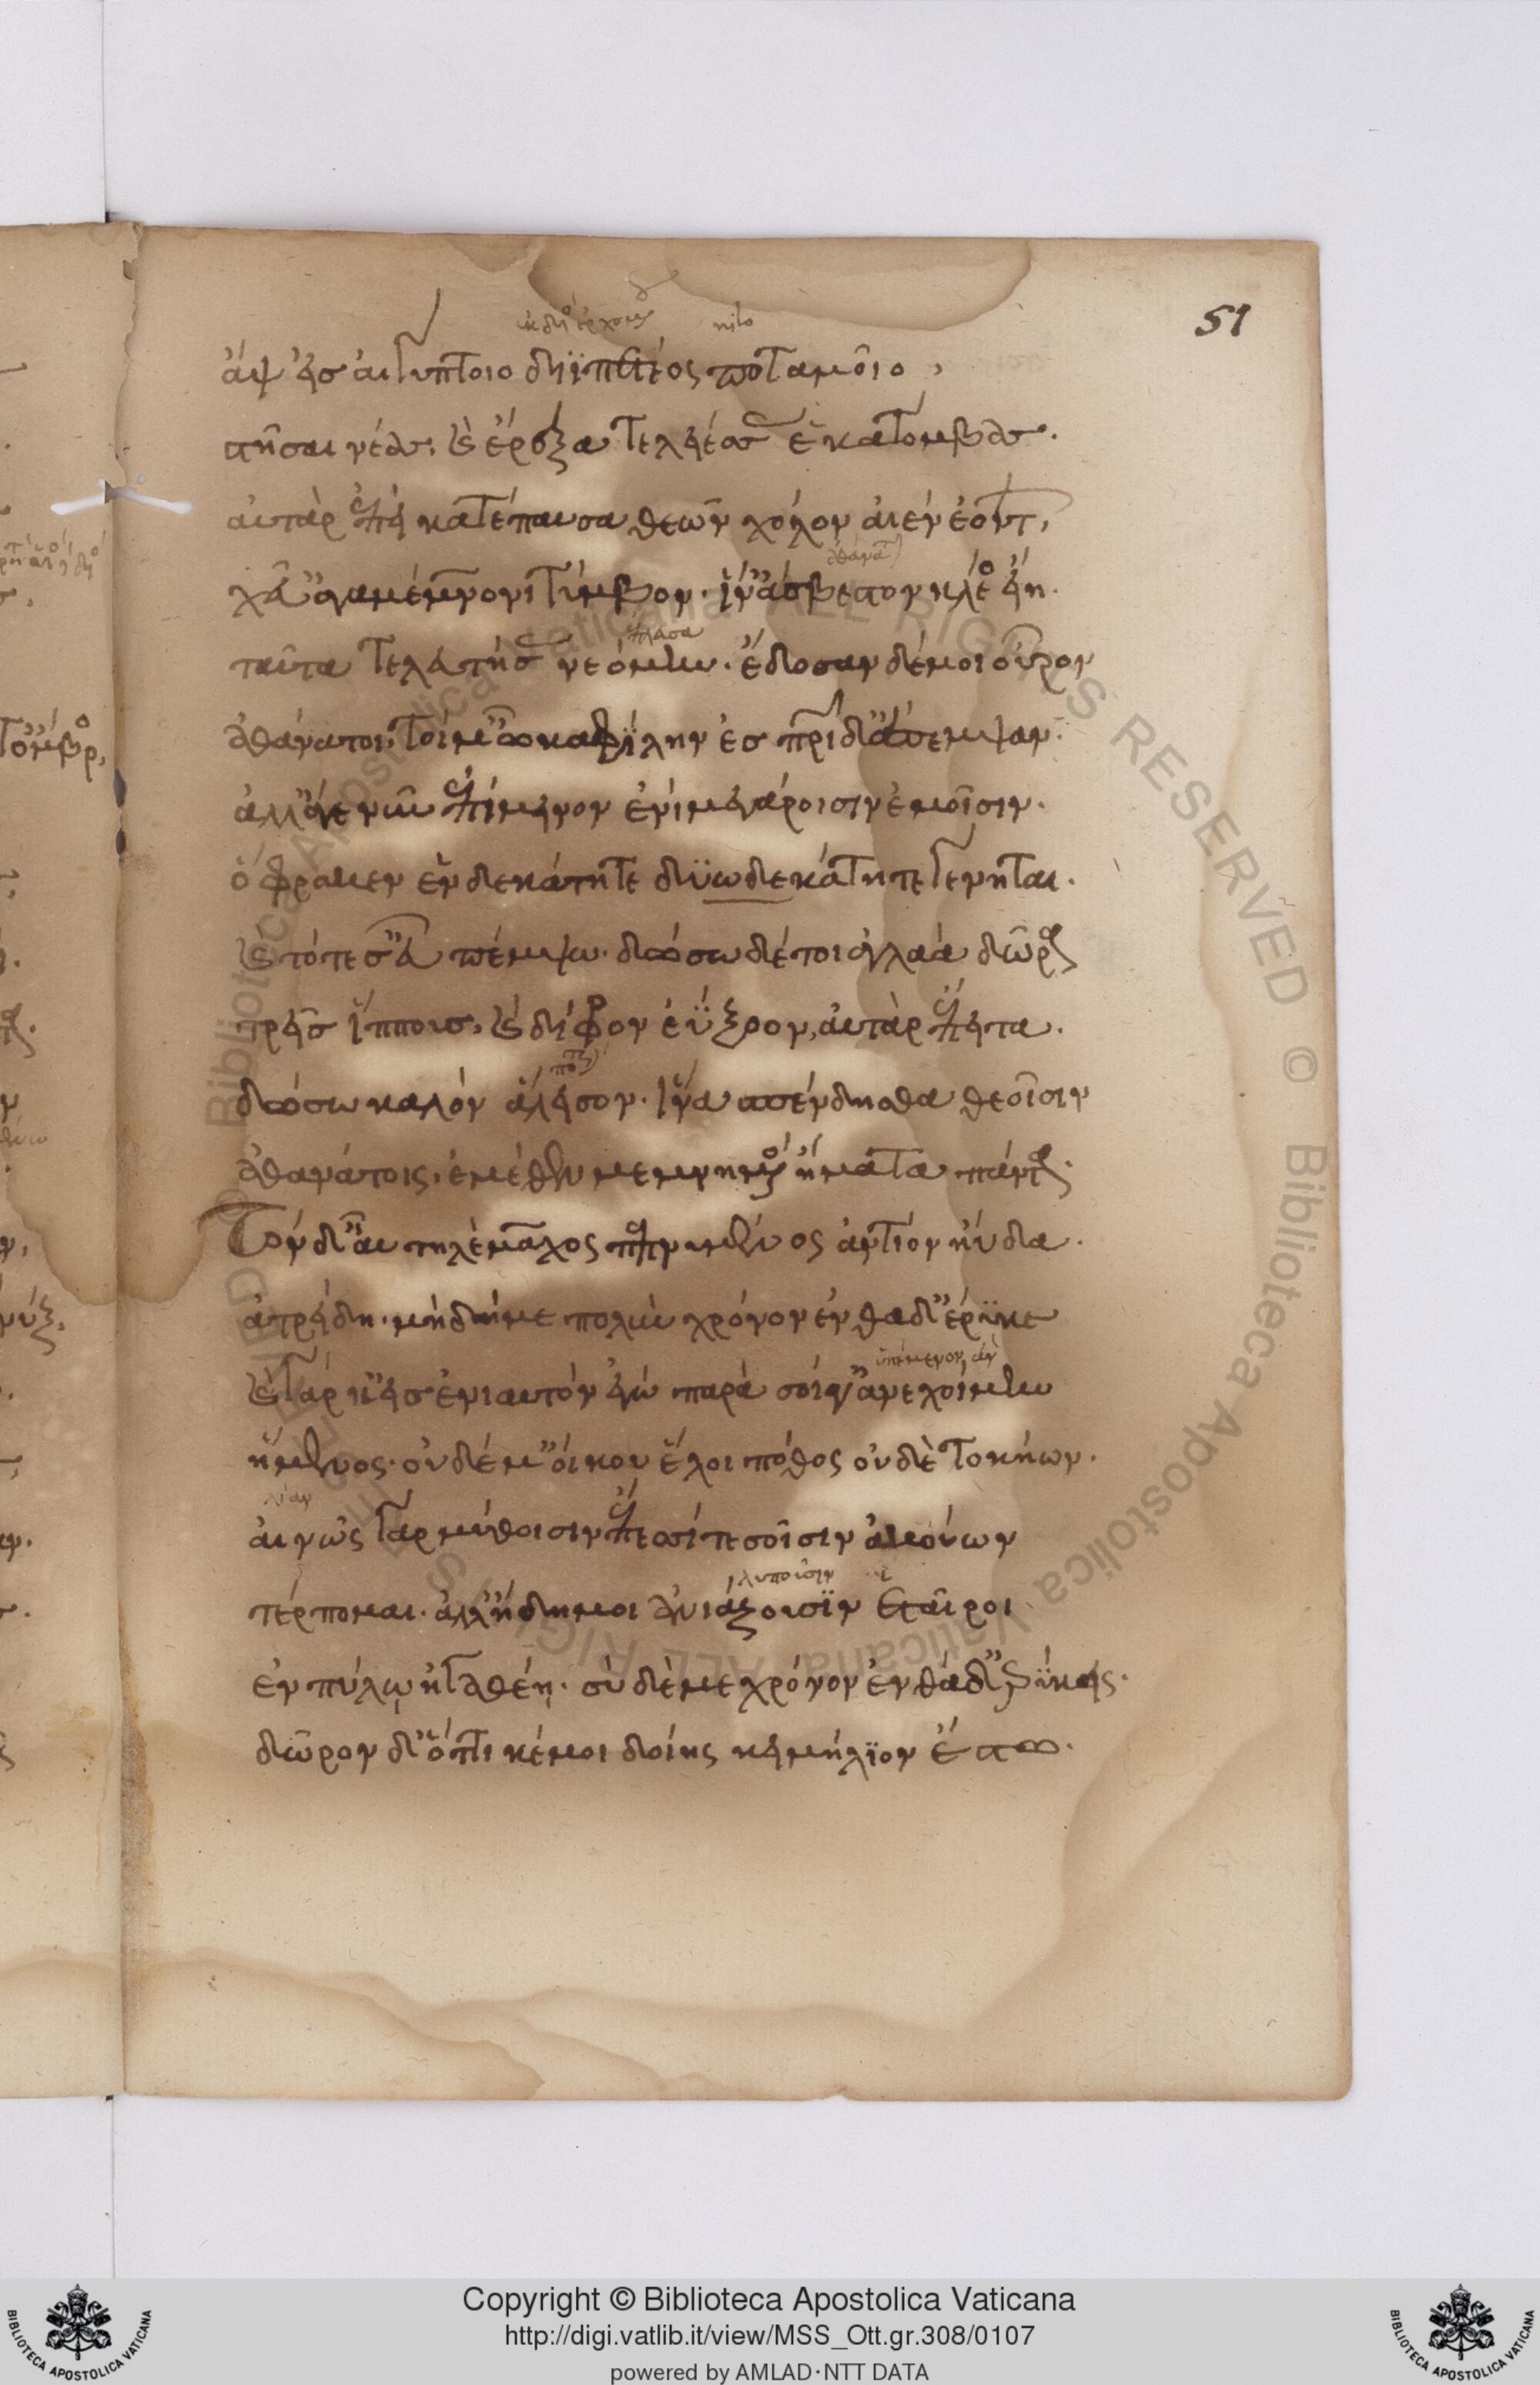 51
nilo
ἂψ εἰς αἰγύπτοιο διϊπετέος ποταμοῖο,
στῆσα νέας, καὶ ἔρεξα τεληέσσας ἑκατόμβας.
αὐτὰρ ἐπεὶ κατέπαυσα θεῶν χόλον αἰὲν ἐόντων,
ἀθάνατον
χεῦ' ἀγαμέμνονι τύμβον. ἵν' ἄσβεστον κλέος εἴη.
ταῦτα τελευτήσας νεόμην. ἔδοσαν δέ μοι οὖρον
ἀθάνατοι, τοί μ' ὦκα φίλην ἐς πατρίδ' ἔπεμψαν.
ἀλλ' ἄγε νῦν ἐπίμεινον ἐνὶ μεγάροισιν ἐμοῖσιν.
ὄφρα κεν ἑνδεκάτη τε δυωδεκάτη τε γένηται.
καὶ τότε σ' εὖ πέμψω. δώσω δέ τοι ἀγλαὰ δῶρα
τρεῖς ἵππους, καὶ δίφρον ἐΰξοον, αὐτὰρ ἔπειτα.
δώσω καλὸν ἄλεισον. ἵνα σπένδησθα θεοῖσιν
ἀθανάτοις, ἐμέθεν μεμνημένος ἤματα πάντα.
Τὸν δ' αὖ τηλέμαχος πεπνυμένος ἀντίον ηὔδα.
ἀτρείδη. μὴ δή με πολὺν χρόνον ἐνθάδ' ἔρυκε
ὑπέμενον ἂν
καὶ γάρ κ' εἰς ἐνιαυτὸν ἐγὼ παρὰ σοί γ' ἀνεχοίμην
ἥμενος. οὐδέ μ' οἴκου ἕλοι πόθος οὐδὲ τοκήων.
λίαν
αἰνῶς γὰρ μύθοισιν ἔπεσσί τε σοῖσιν ἀκούων
λυποῦσιν
τέρπομαι. ἀλλ' ἤδη μοι ἀνιάζουσιν ἑταῖροι
ἐν πύλῳ ἠγαθέῃ. σὺ δέ με χρόνον ἐνθάδ' ἐρύκεις.
δῶρον δ' ὅττι κέ μοι δοίης κειμήλιον ἔστω.
Copyright © Biblioteca Apostolica Vaticana
http://digi.vatlib.it/view/MSS_Ott.gr.308/0107
powered by AMLAD·NTT DATA
BIBLIOTECA APOSTOLICA VATICANA
BIBLIOTECA APOSTOLICA VATICANA